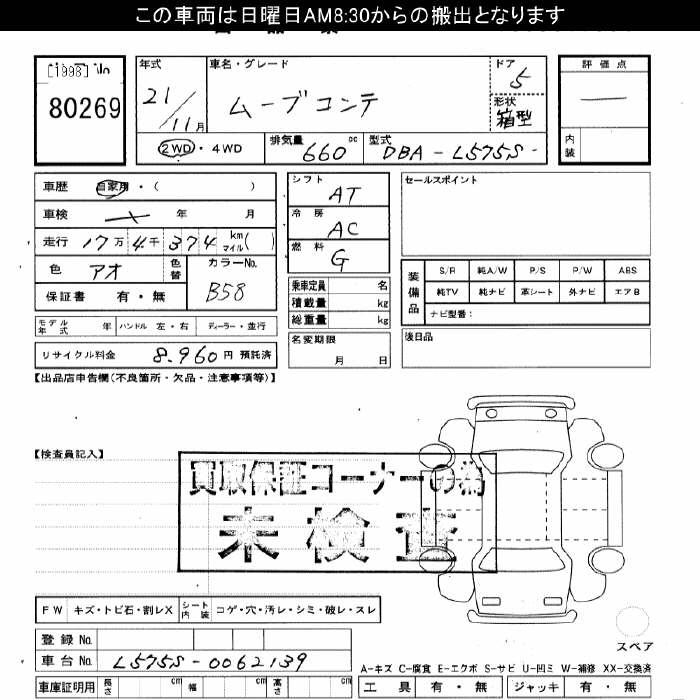 この車両は日曜日AM8:30からの搬出となります
[1998]
80269
年式 車名・グレード ドア 評価点
21/11月 ムーブコンテ 5
形状 箱型
2WD・4WD 排気量 660 cc 型式 DBA-L575S-
内装
車歴 自家用・( )
車検 年 月
走行 17万 4千 374 km マイル( )
色 アオ 色替 カラーNo. B58
保証書 有・無
モデル年式 年 ハンドル 左・右 ディーラー・並行
リサイクル料金 8,960 円 預託済
シフト AT
冷房 AC
燃料 G
乗車定員 名
積載量 kg
総重量 kg
名変期限 月 日
セールスポイント
装備品 S/R 純A/W P/S P/W ABS
純TV 純ナビ 革シート 外ナビ エアB
ナビ型番:
後日品
【出品店申告欄(不良箇所・欠品・注意事項等)】
【検査員記入】
買取保証コーナーの為
未検査
FW キズ・トビ石・割レX シート内装 コゲ・穴・汚レ・シミ・破レ・スレ
スペア
登録No.
車台No. L575S-0062139
A-キズ C-腐食 E-エクボ S-サビ U-凹ミ W-補修 XX-交換済
車庫証明用 長さ cm 幅 cm 高さ cm 工具 有・無 ジャッキ 有・無